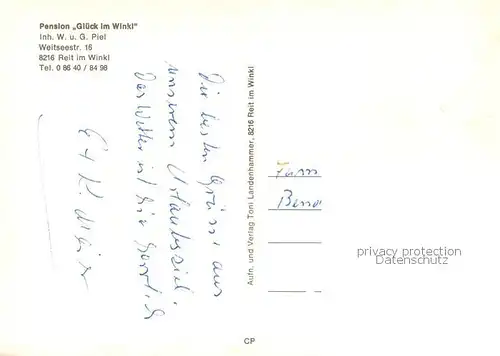 Pension „Glück im Winkl"
Inh. W. u. G. Piel
Weitseestr. 16
8216 Reit im Winkl
Tel. 0 86 40 / 84 98
Die besten Grüsse aus
unserem Urlaubsziel.
Das Wetter ist hier herrlich
Aufn. und Verlag Toni Landenhammer, 8216 Reit im Winkl
Fam
privacy protection
Datenschutz
CP